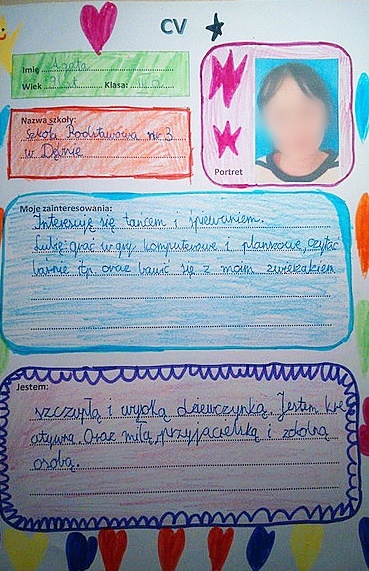 CV
Imię Agata
Wiek Klasa:
Nazwa szkoły:
Szkoła Podstawowa nr 3
w Dębnie
Portret
Moje zainteresowania:
Interesuję się tańcem i śpiewaniem.
Lubię grać w gry komputerowe i planszowe, czytać
baśnie itp. oraz bawić się z moim zwierzakiem
Jestem:
szczupłą i wysoką dziewczynką. Jestem kre
atywną. Oraz miłą, przyjacielską i zdolną
osobą.